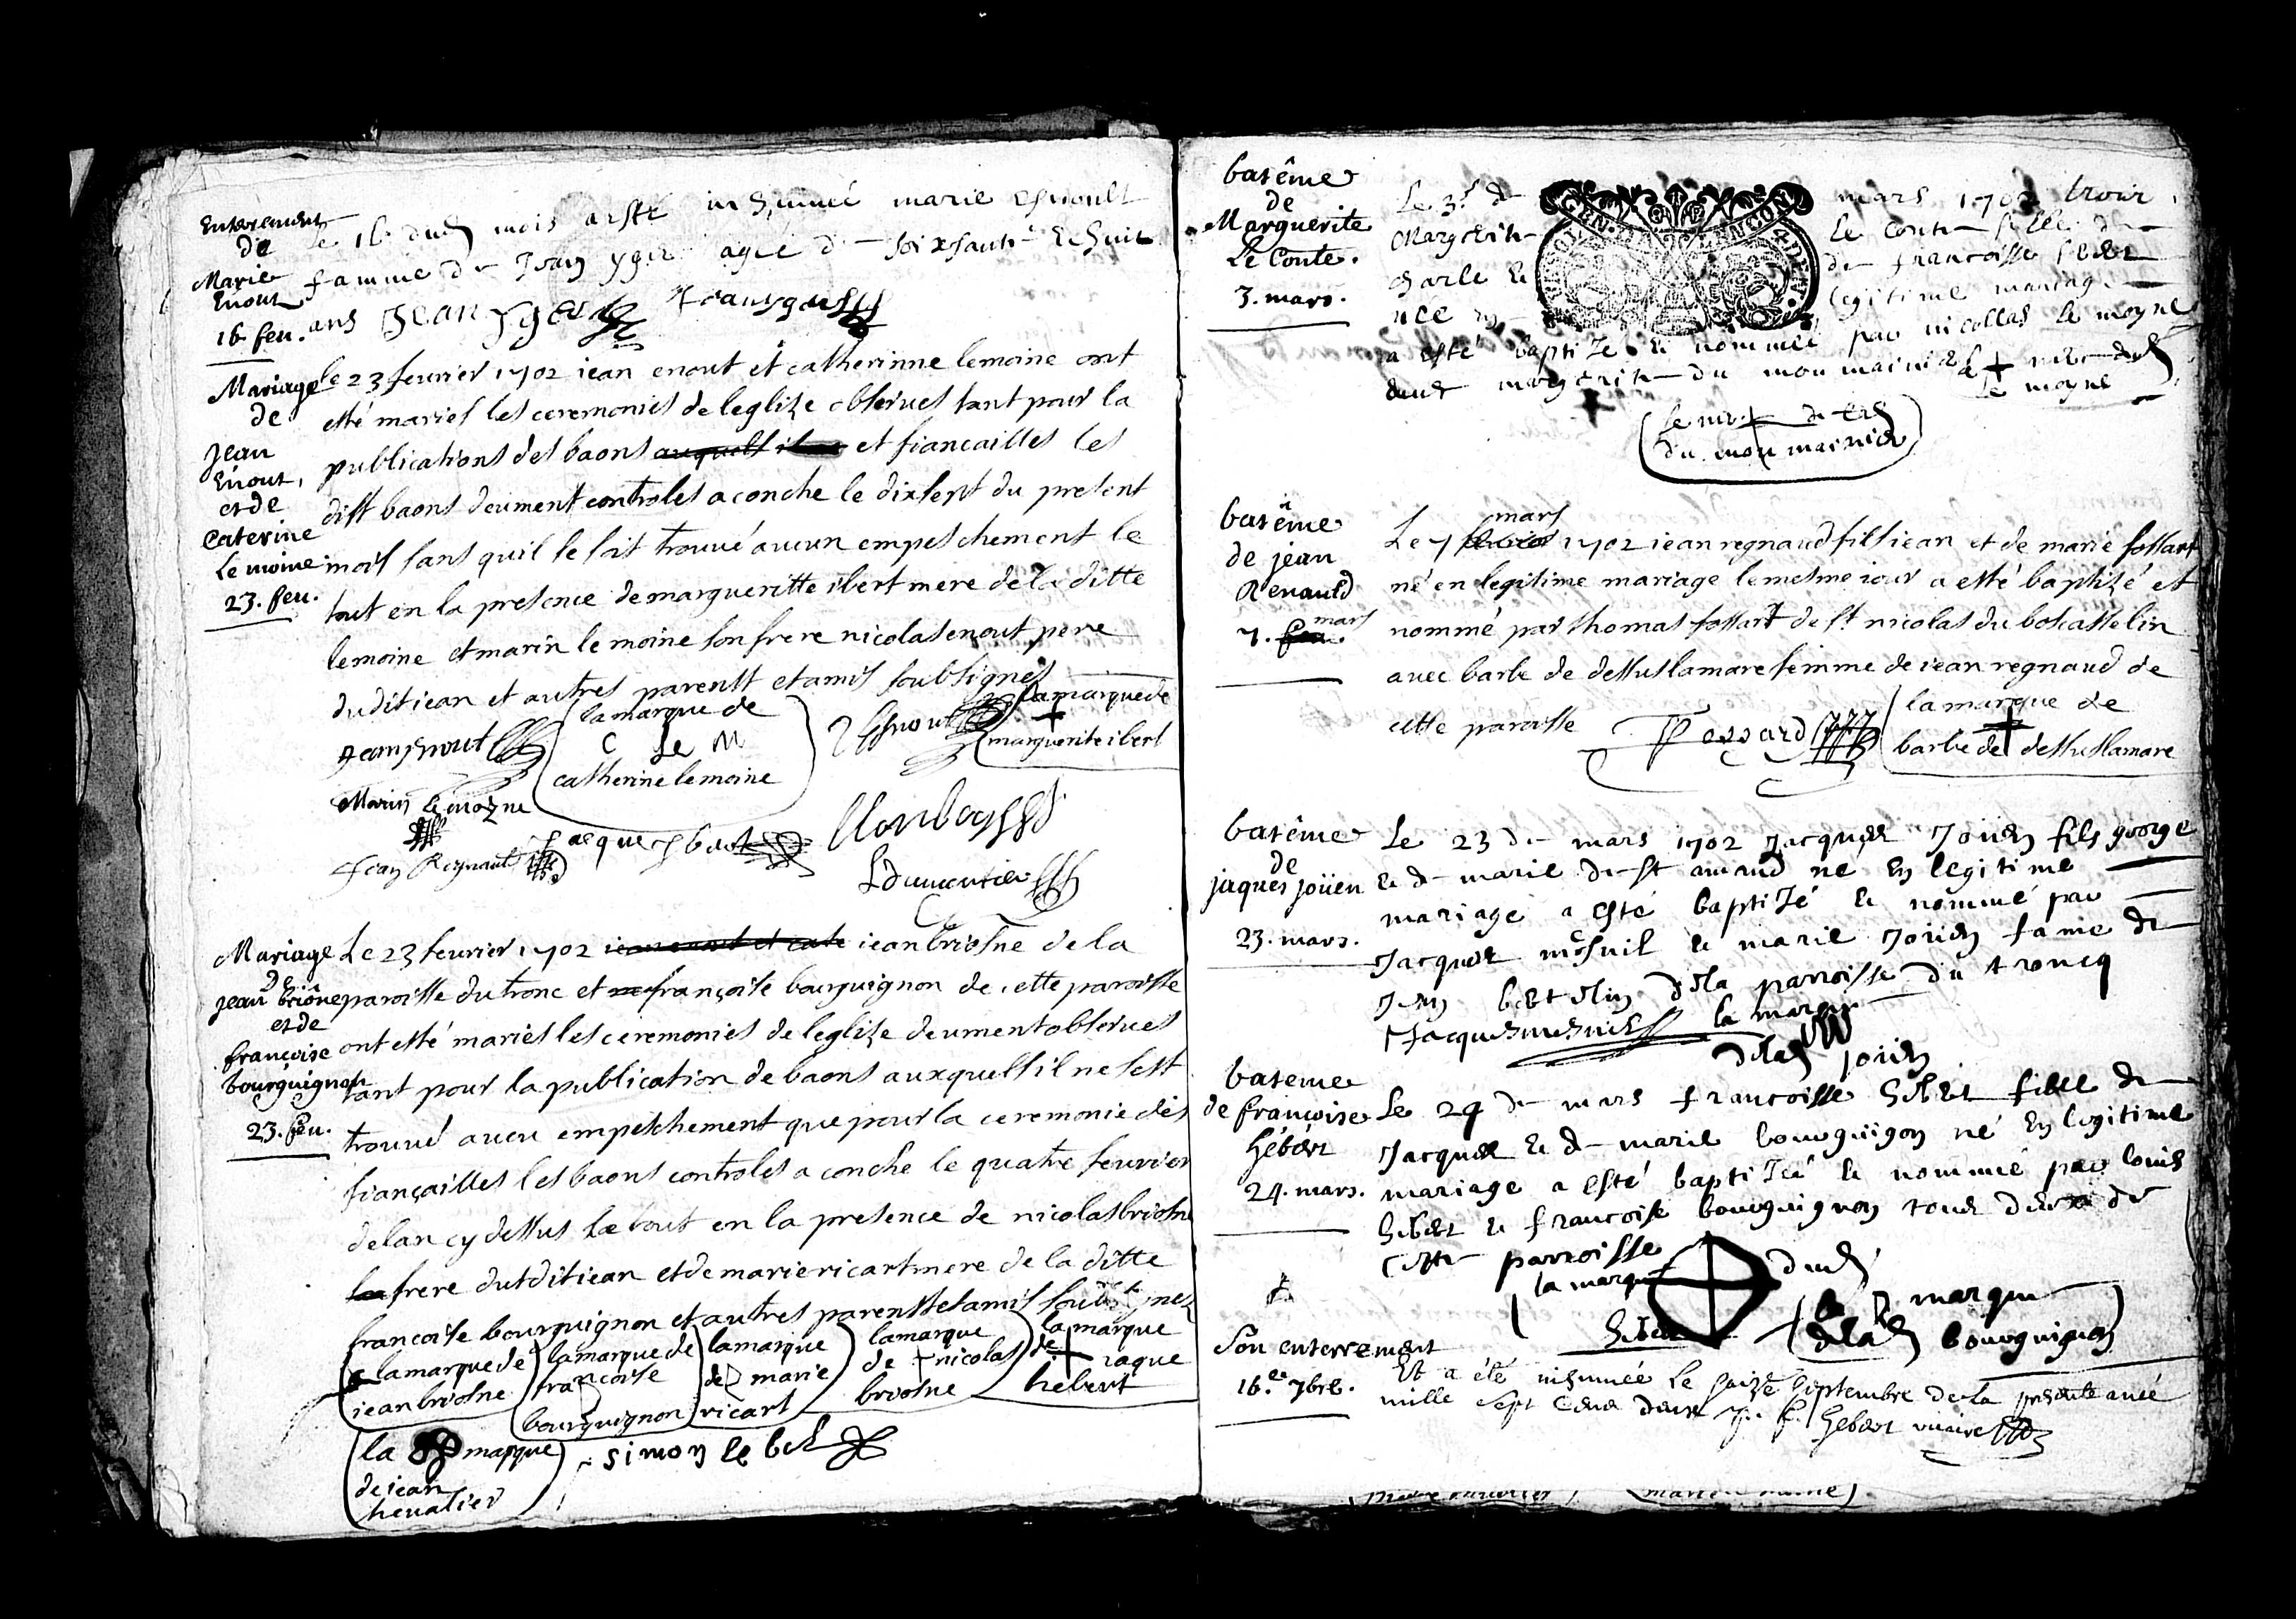 Enterement
de
Marie
Enout
16. feu.
le 16 dud mois a esté inhumée marie Esnoult
famme de Jean yger agée de soixsante et huit
ans Jean yger
Mariage
de
Jean
Enout,
et de
Caterine
Le moine
23. feu.
le 23 feurier 1702 iean enout et catherinne lemoine ont
esté mariés les ceremonies de leglize obserues tant pour la
publications des baons auquels il et fiancailles les
dist baons deument controles a conche le dixsept du present
mois sans quil se soit trouué aucun empeschement le
tout en la presence de margueritte ibert mere de la ditte
lemoine et marin le moine son frere nicolas enout pere
du dit iean et autres parenst et amis soubsignés
Jean Esnout
la marque de
C Le M
catherine lemoine
Esnoult
la marque de
marguerite ibert
Marin Lemoyne
Jean Regnault
Jacque ybert
Ldumoutier
Mariage
de
jean briône
et de
françoise
bourguignon
23. feu.
Le 23 feurier 1702 iean enout et cate iean briosne de la
paroisse du tronc et françoise bourguignon de cette paroisse
ont esté mariés les ceremonies de leglize deument obserues
tant pour la publication de baons auxquels il ne sest
trouué aucu empeschement que pour la ceremonie des
fiançailles les baons controles a conche le quatre feurier
de lan cy dessus le tout en la presence de nicolas briosne
frere dudit iean et de marie ricart mere de la ditte
francoise bourguignon et autres parenst et amis soubsignez
la marque de
iean briosne
la marque de
francoise
bourguignon
la marque
de marie
ricart
la marque
de nicolas
briosne
la marque
de jaque
hebert
la marque
de iean
cheualier
simon le bel
batême
de
Marguerite
Le Conte.
3. mars.
Le 3.e de mars 1702 trois
Margerite le conte fille de
charle et de francoisse
née en legitime mariage
a esté baptizée et nommée par nicollas le moyne
auec margerite du mou mainier
le moyne
du mou mainier
batême
de jean
Renauld
mars
7. feu.
mars
Le 7 feurier 1702 iean regnaud fils iean et de marie fossart
né en legitime mariage le mesme iour a esté baptizé et
nommé par thomas fossart de st nicolas du boscasselin
auec barbe de dessuslamare femme de iean regnaud de
cette paroisse
T Fossard
la marque de
barbe de dessuslamare
batême
de
jaques joüen
23. mars.
Le 23 de mars 1702 Jacques Joüen fils george
et de marie de st amand né en legitime
mariage a esté baptizé et nommé par
Jacques mesnil et marie Joüen fame de
Jean bertelin de la parroisse du troncq
Jacques mesnil
la marque
de lad joüen
bateme
de françoise
hébert
24. mars.
Le 24 de mars francoisse hebert fille de
Jacques et de marie bourguignon né en legitime
mariage a esté baptizéé et nommée par louis
hebert et francoise bourguignon tous deux de
cette parroisse
la marque dud
hebert
la marque
de lad bourguignon
Son enterrement
16.e 7bre.
Et a été inhumée le saize septembre de la presente année
mille sept cens deux hebert uicaire